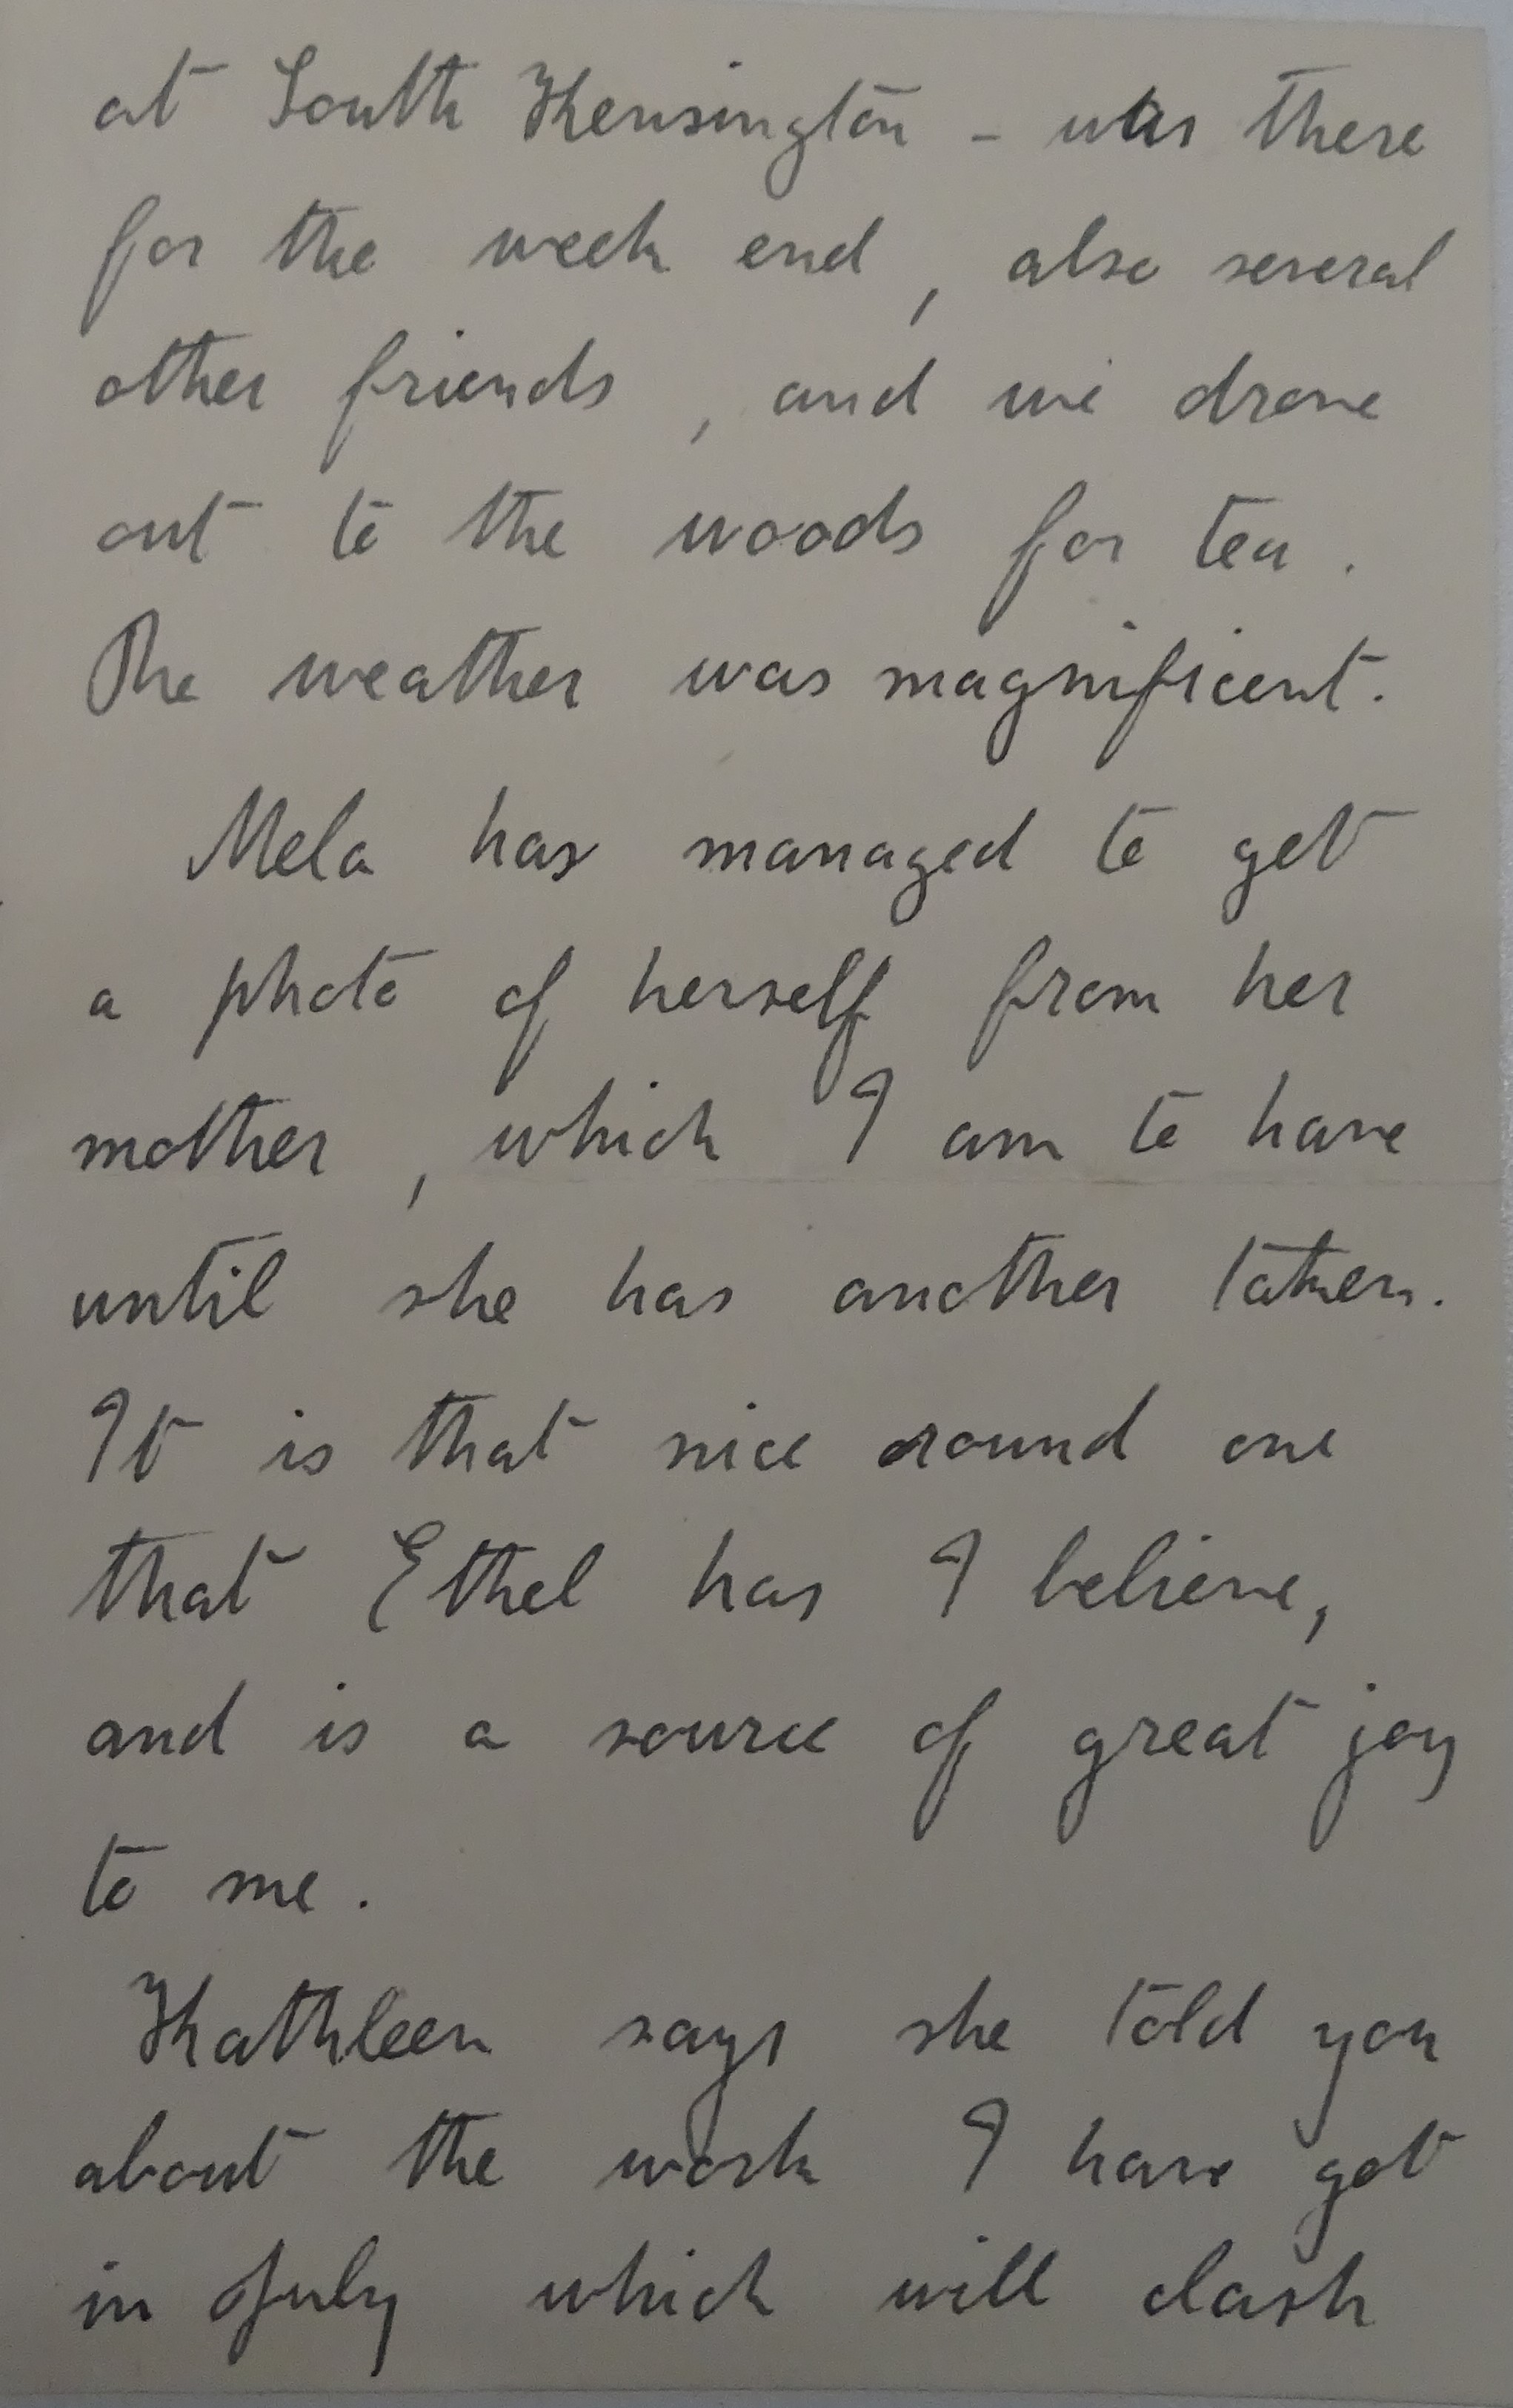 at South Kensington - was there
for the week end, also several
other friends, and we drove
out to the woods for tea.
The weather was magnificent.
Mela has managed to get
a photo of herself from her
mother, which I am to have
until she has another taken.
It is that nice round one
that Ethel has I believe,
and is a source of great joy
to me.
Kathleen says she told you
about the work I have got
in July which will clash